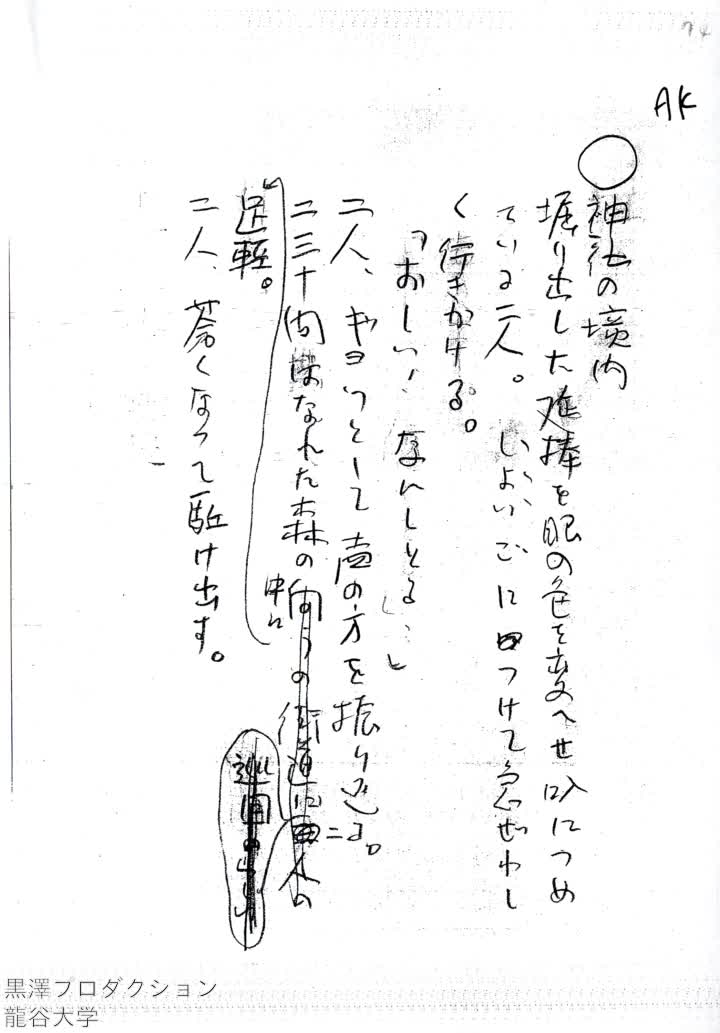 74
AK
○神社の境内
掘り出した延棒を眼の色を変へせ叺につめ
ている二人。しょいこにつけて急ぜわし
く行きかける。
「おしい! なんしとる…」
二人、ギョッとして声の方を振り返る。
二三十間はなれた森の向うの街道に二人の
中に
足軽。
二人、蒼くなって駈け出す。
黒澤プロダクション
龍谷大学